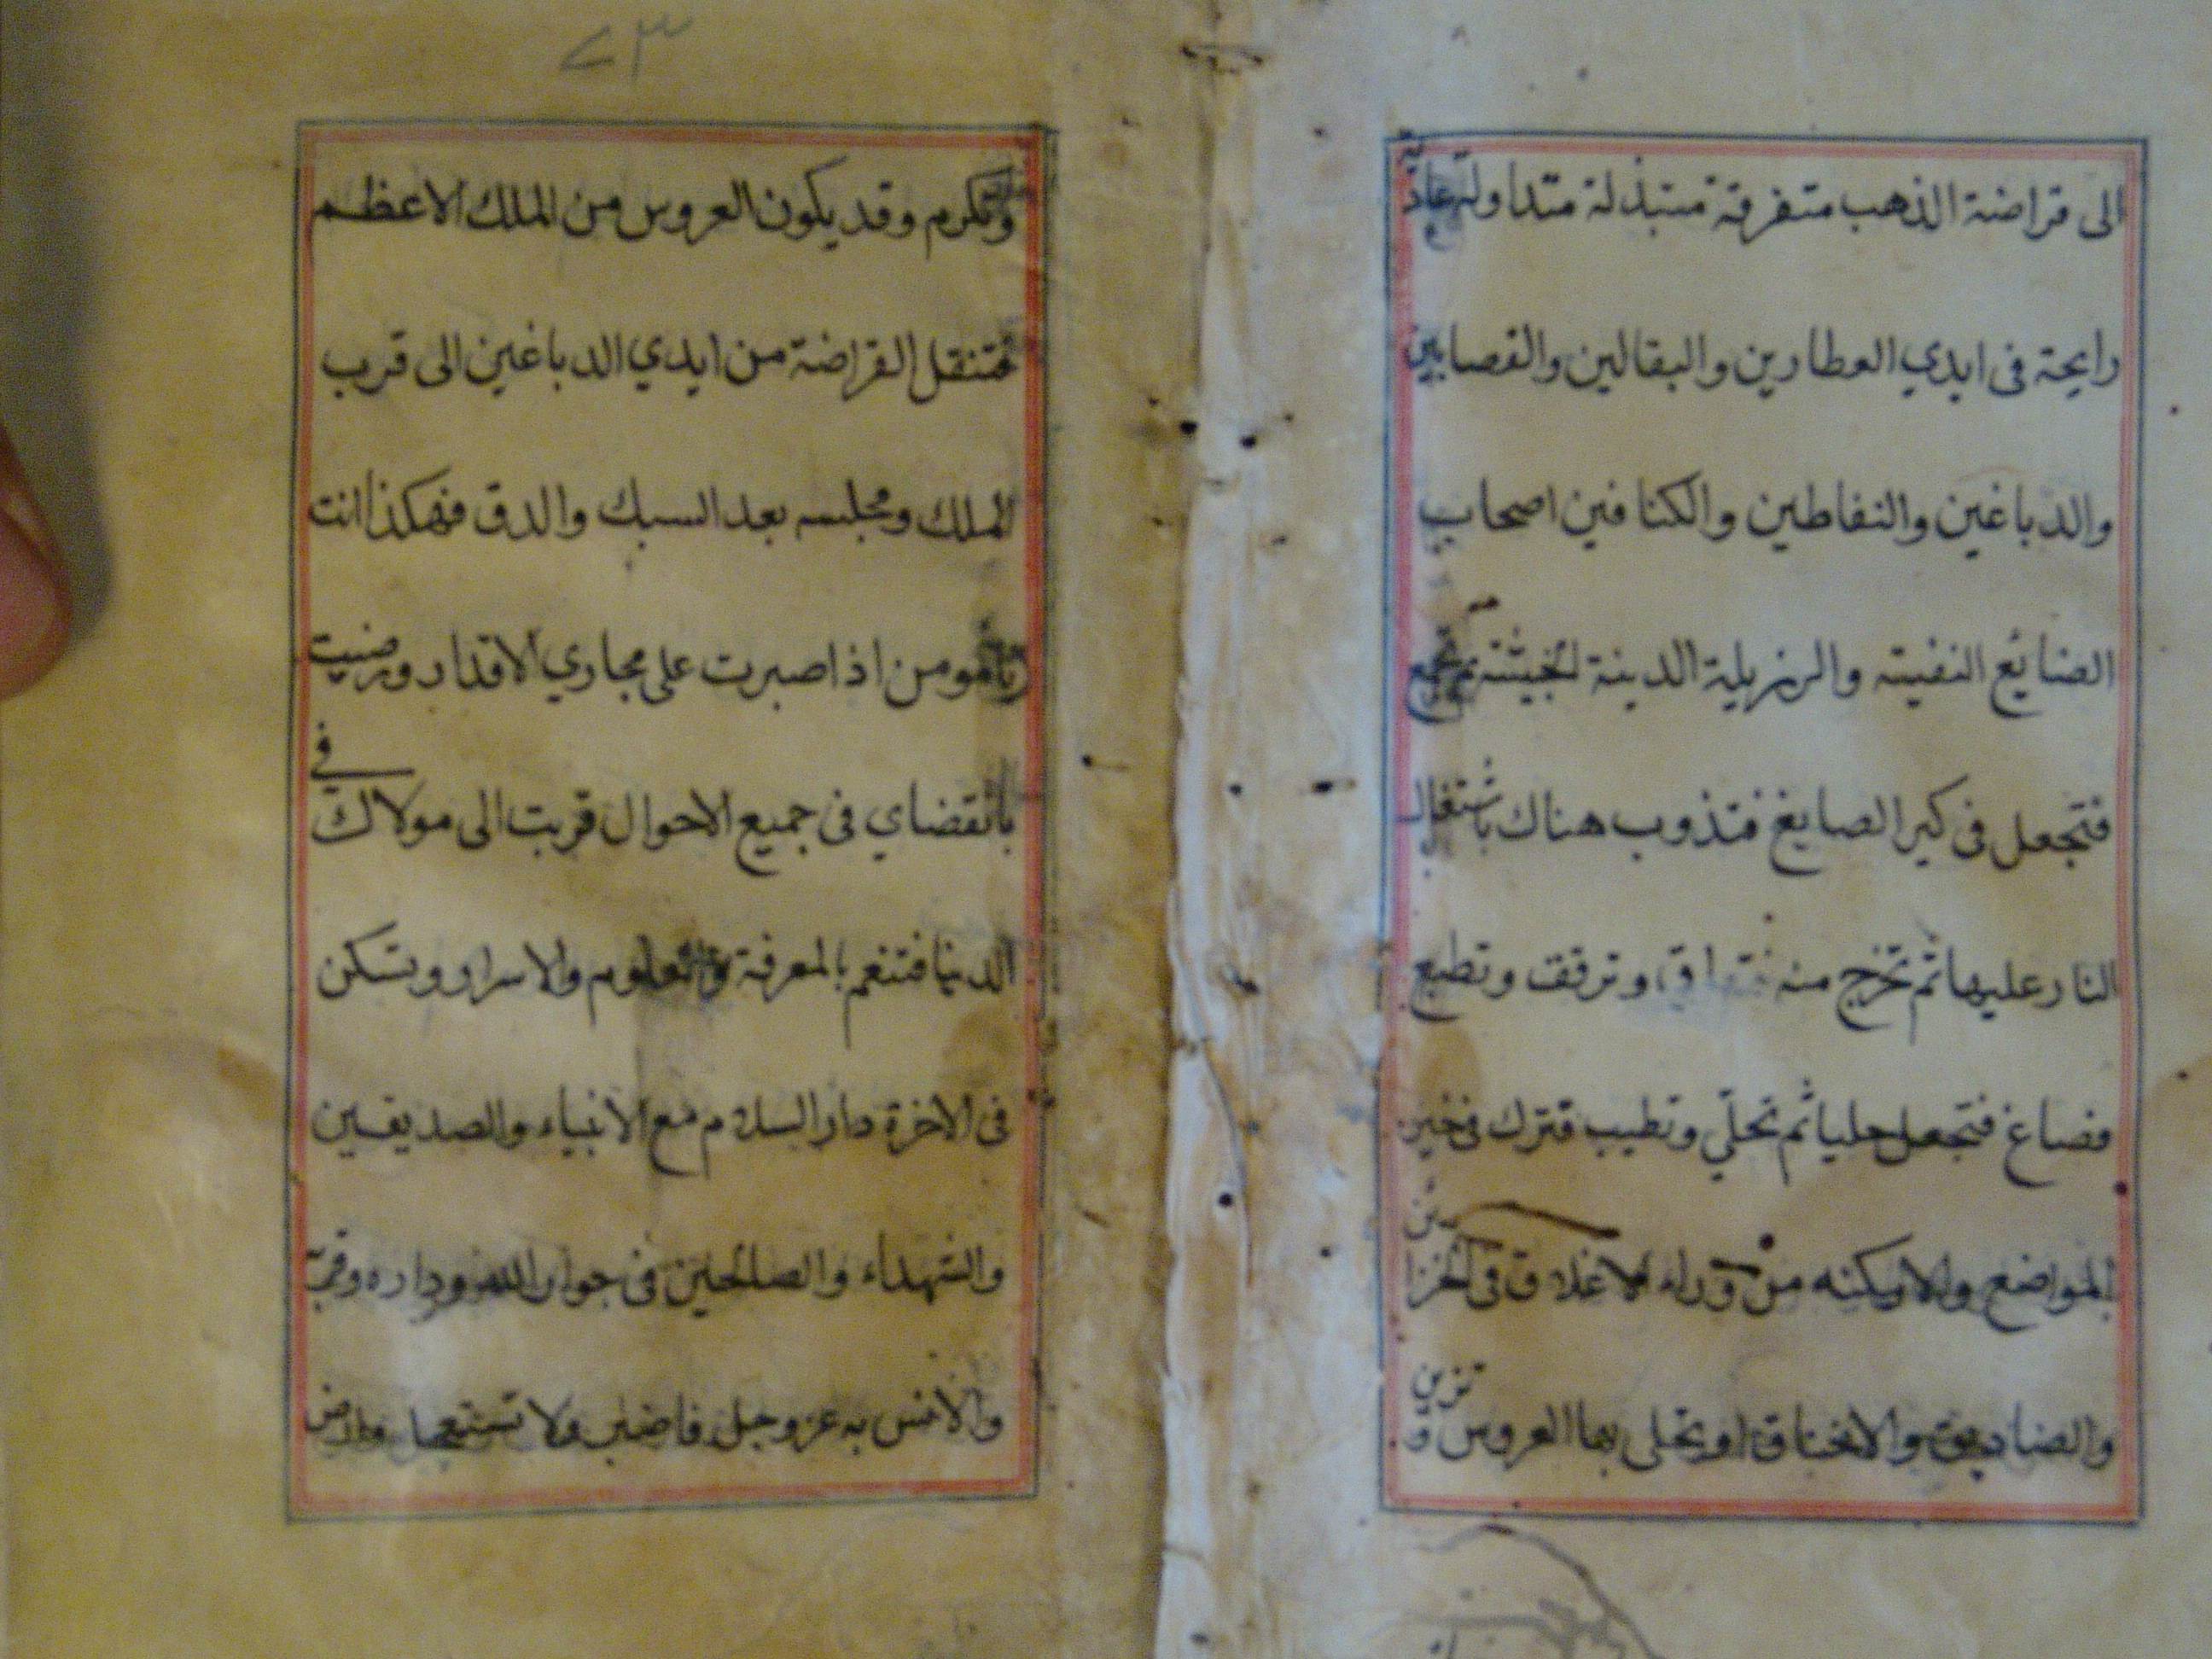 الى قراضة الذهب متفرقة متبذلة متداولة
رايحة فى ايدي العطارين والبقالين والقصابين
والدباغين والنفاطين والكنافين اصحاب
الصنايع النفيسة والرزيلة الدينة الخبيثة ثم تجمع
فتجعل فى كير الصايغ فتذوب هناك باشتغال
النار عليها ثم تخرج منه وترقق وتطبع
فصاغ فتجعل حليا ثم تحلّي وتطيب فترك فى خير
المواضع والامكنه من وراء الاغلاق فى الخزاين
والصناديق والاخناق او تحلى بها العروس و تزين
٧٣
وتكرم وقد يكون العروس من الملك الاعظم
فتنقل القراضة من ايدي الدباغين الى قرب
الملك ومجلسه بعد السبك والدق فهكذا انت
يا مومن اذا صبرت على مجاري الاقدار ورضيت
بالقضاي فى جميع الاحوال قربت الى مولاك في
الدنيا فتنعم بالمعرفة والعلوم والاسرار وتسكن
فى الاخرة دار السلام مع الانبياء والصديقين
والشهداء والصالحين فى جوار الله وداره وقربه
والانس به عز وجل فاصبر ولا تستعجل وارض